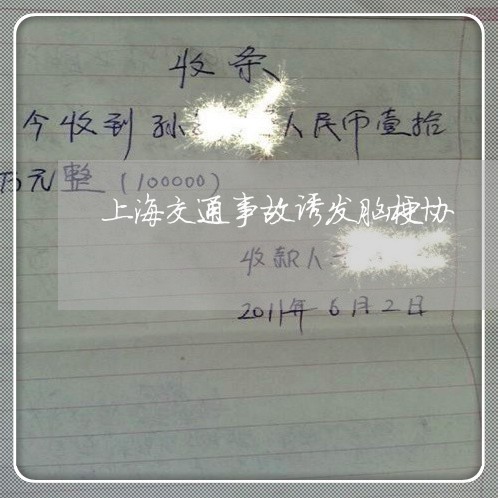 收条
今收到孙 人民币壹拾
万元整(100000)
上海交通事故诱发脑梗协
收款人
2011年6月2日